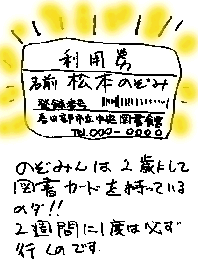 利用券
名前 松本のぞみ
登録番号
春日部市立中央図書館
TEL 000-0000
のぞみんは2歳にして
図書カードを持っている
のダ!!
2週間に1度は必ず
行くのです